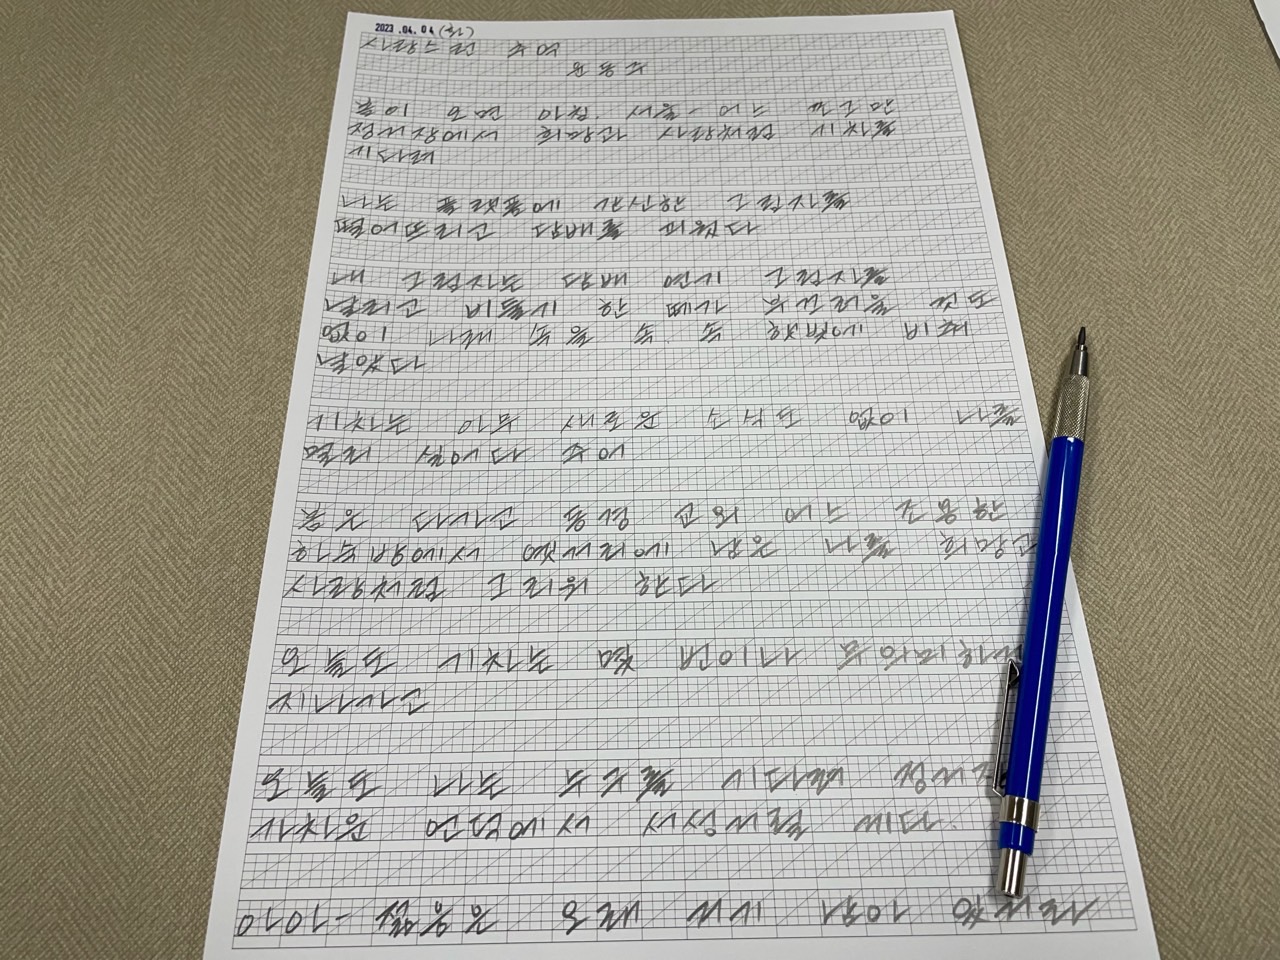 2023.04.04(화)
사랑스런 추억
윤동주
봄이 오던 아침. 서울-어느 쪼그만
정거장에서 희망과 사랑처럼 기차를
기다려
나는 플랫폼에 간신한 그림자를
떨어뜨리고 담배를 피웠다
내 그림자는 담배 연기 그림자를
날리고 비둘기 한 떼가 부끄러울 것도
없이 나래 속을 속. 속 햇빛에 비춰
날았다
기차는 아무 새로운 소식도 없이 나를
멀리 실어다 주어
봄은 다가고 동경 교외 어느 조용한
하숙방에서 옛거리에 남은 나를 희망과
사랑처럼 그리워 한다
오늘도 기차는 몇 번이나 무의미하게
지나가고
오늘도 나는 누구를 기다려 정거장
가차운 언덕에서 서성거릴 게다.
아아-젊음은 오래 거기 남아 있거라